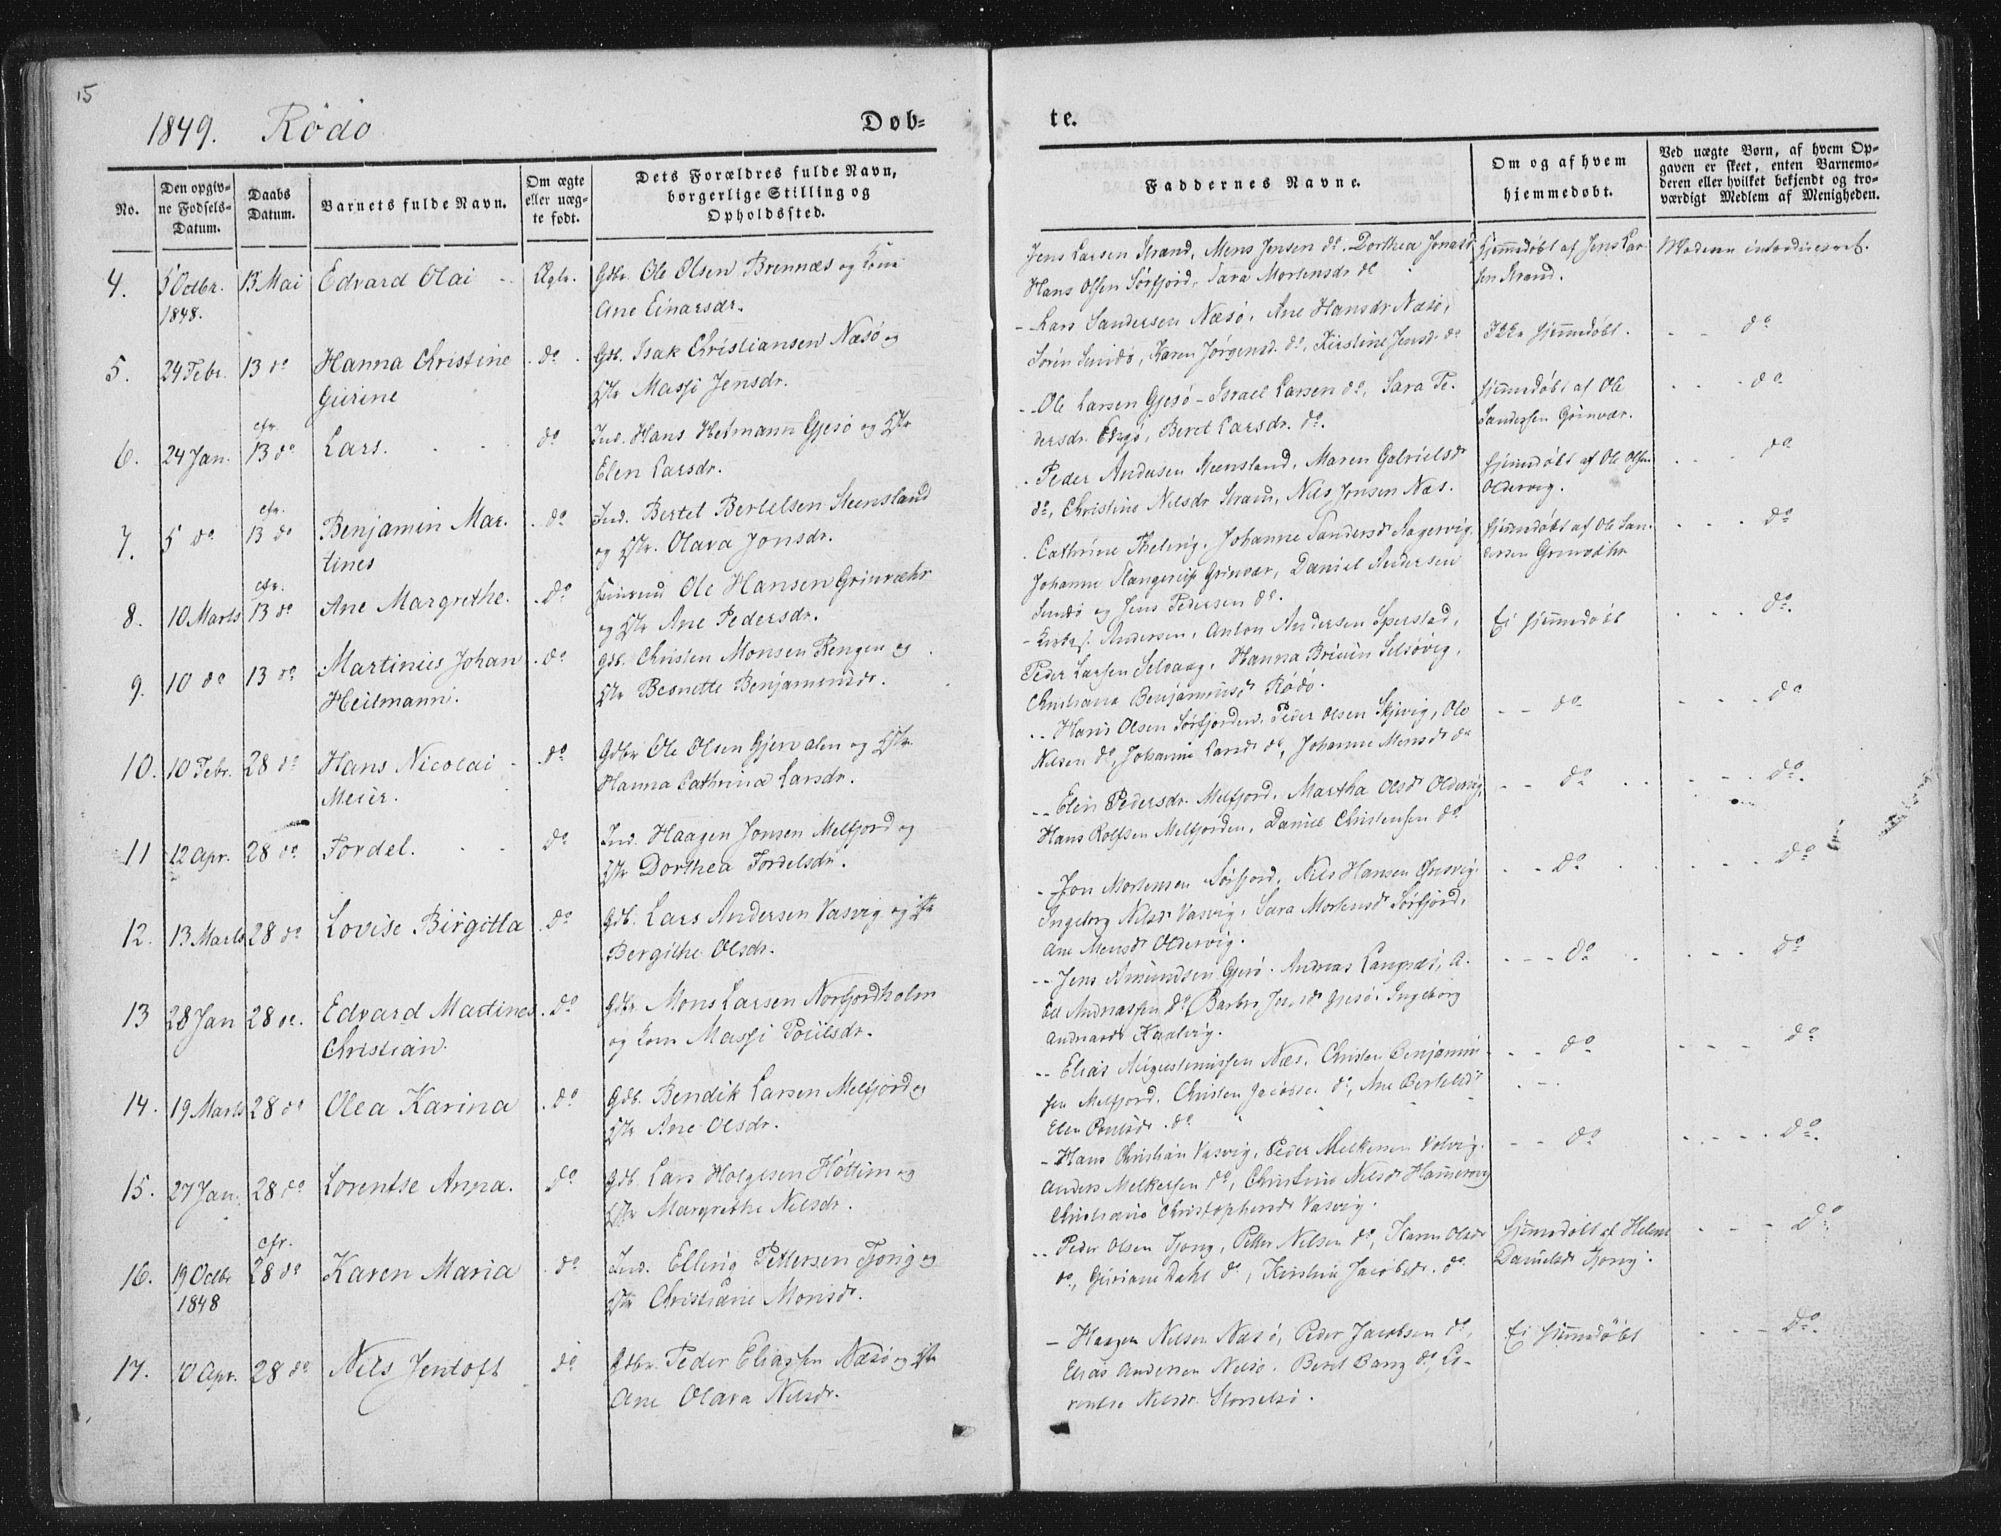 15
1849. Rödö
Døb-
te.
No.
Den opgiv-
ne Fødsels-
Datum.
Daabs
Datum.
Barnets fulde Navn.
Om ægte
eller uæg-
te født.
Dets Forældres fulde Navn,
borgerlige Stilling og
Opholdssted.
Faddernes Navne.
Om og af hvem
hjemmedøbt.
Ved uægte Børn, af hvem Op-
gaven er skeet, enten Barnemo-
deren eller hvilket bekjendt og tro-
værdigt Medlem af Menigheden.
4. 5 Octbr. 13 Mai Edvard Olai Ægte. Gdbr. Ole Olsen Brennæs og Kone
1848. Ane Einarsdr.
Jens Larsen Strand, Mons Jensen do. Dorthea Jonasd
Hans Olsen Sörfjord, Sara Mortensdr do
Hjemmedöbt af Jens Lar-
sen Strand.
Moderen introduceret.
5. 24 Febr. 13 do Hanna Christine do. Gdb. Isak Christiansen Næsö og
Gurine Hstr Massi Jensdr.
- Lars Sandersen Næsö, Ane Hansdr Næsö,
Sören Sundö, Karen Jörgensd. do, Kirstine Jensd. do
Ikke hjemmedöbt.
do
6. 24 Jan. cfr. 13 do Lars. do Ind. Hans Heitmann Gjesö og Hstr
Elen Larsdr.
- Ole Larsen Gjesö - Israel Larsen do, Sara Pe-
dersdr. Engö, Beret Larsdr. do.
Hjemmedöbt af Ole
Sandersen Grönvær.
do
7. 5 do cfr. 13 do Benjamin Mar- do Ind. Bertel Bertelsen Steensland
tines og Hstr. Olava Jonsdr.
Peder Andersen Steensland, Maren Gabrielsdr
do, Christine Nilsdr Straum, Nils Jonsen Næs.
hjemmedöbt af Ole Olsen
Oldervig.
do
8. 10 Marts cfr. 13 do Ane Margrethe. do Ole Hansen Grinvæhr
og Hstr Ane Pedersdr.
Cathrine Thelvig, Johanne Sandersd Sagervig,
Johanne Grinvær, Daniel Andersen
Sundö og Jens Pedersen do.
hjemmedöbt af Ole San-
dersen Grinvæhr
do
9. 10 do 13 do Martinus Johan do Gdb. Christen Monsen Rengen og
Heitmann. Hstr Besnette Benjaminsdr.
Andersen, Anton Andersen Sperstad,
Peder Larsen Selvaag, Hanna Selsövig,
Christiana Benjaminsd Rödö.
Ei hjemmedöbt
do.
10. 10 Febr. 28 do Hans Nicolai do Gdbr Ole Olsen Gjervalen og Hstr
Meier. Hanna Cathrina Larsdr.
Hans Olsen Sörfjorden, Peder Olsen Skjevig, Ole
Nilsen do, Johanne Larsd do, Johanne Monsdr do
do
do
11 12 Apr. 28 do Tordel. do Ind. Haagen Jonsen Melfjord og
Hstr Dorthea Tordelsdr.
Elen Pedersdr. Melfjord, Martha Olsd Oldervig,
Hans Rolfsen Melfjorden, Daniel Christensen do.
do
do.
12. 13 Marts 28 do Lovise Birgitta do Gdb. Lars Andersen Vasvig og Hstr
Bergithe Olsdr.
Jon Mortensen Sörfjord, Nils Hansen
Ingeborg Nilsd Vasvig, Sara Mortensd Sörfjord,
Ane Monsd Oldervig.
do
do
13 28 Jan 28 do. Edvard Martines do Gdbr Mons Larsen Norfjordholm
Christian. og Kone Massi Poulsdr.
Jens Amundsen Gjesö. Andreas Langnæs, A-
do, Barbro Jensd Gjesö. Ingeborg
do
do
14. 19 Marts 28 do Olea Karina do Gdb. Bendik Larsen Melfjord og
Hstr Ane Olsdr.
Elias Augustinussen Næs, Christen Benjamin-
sen Melfjord, Christen Jacobse. do, Ane Bertelsdr
Elen Poulsdr. do
do
do
15. 27 Jan. 28 do Lorentse Anna. do Gdb. Lars Holgesen Höttim og
Hstr Margrethe Nilsdr.
- Hans Christian Vasvig, Peder Melkersen Valvig,
Anders Melkersen do, Christine Nilsd
Christiane Christophersd Vasvig.
do
do.
16. 19 Octbr cfr. 28 do Karen Maria do Ind. Elling Pettersen Tjong og
1848 Hstr Christiane Monsdr.
Peder Olsen Tjong, Petter Nilsen do, Karen Olsdr
do, Guriane Dahl do, Kirstine Jacobsdr. do.
hjemmedöbt af Helene
Danielsd Tjong.
do
17. 10 Apr. 28 do Nils Jentoft do Gdbr. Peder Eliassen Næsö og Hstr
Ane Olava Nilsdr.
- Haagen Nilsen Næsö, Peder Jacobsen do,
Elias Andersen Nelsö. Beret Bang do, Lo-
rentse Nilsdr. Storselsö.
Ei hjemmedöbt
do.